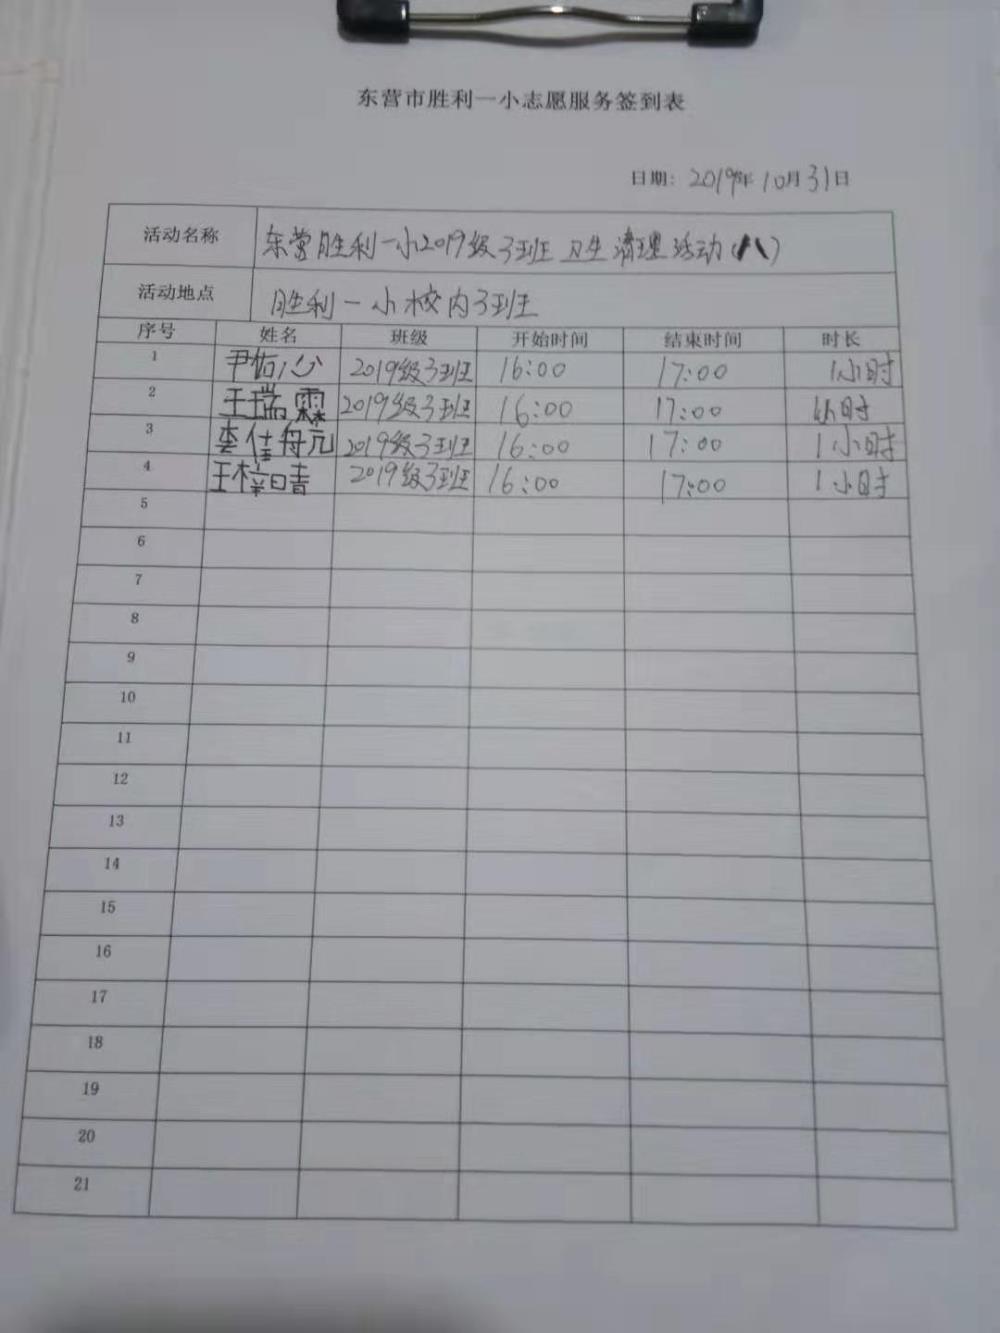 东营市胜利一小志愿服务签到表
日期: 2019年10月31日
活动名称 东营胜利一小2019级3班卫生清理活动(八)
活动地点 胜利一小校内3班
序号 姓名 班级 开始时间 结束时间 时长
1 尹佑心 2019级3班 16:00 17:00 1小时
2 王瑞霖 2019级3班 16:00 17:00 1小时
3 李佳每元 2019级3班 16:00 17:00 1小时
4 王梓晴 2019级3班 16:00 17:00 1小时
5
6
7
8
9
10
11
12
13
14
15
16
17
18
19
20
21